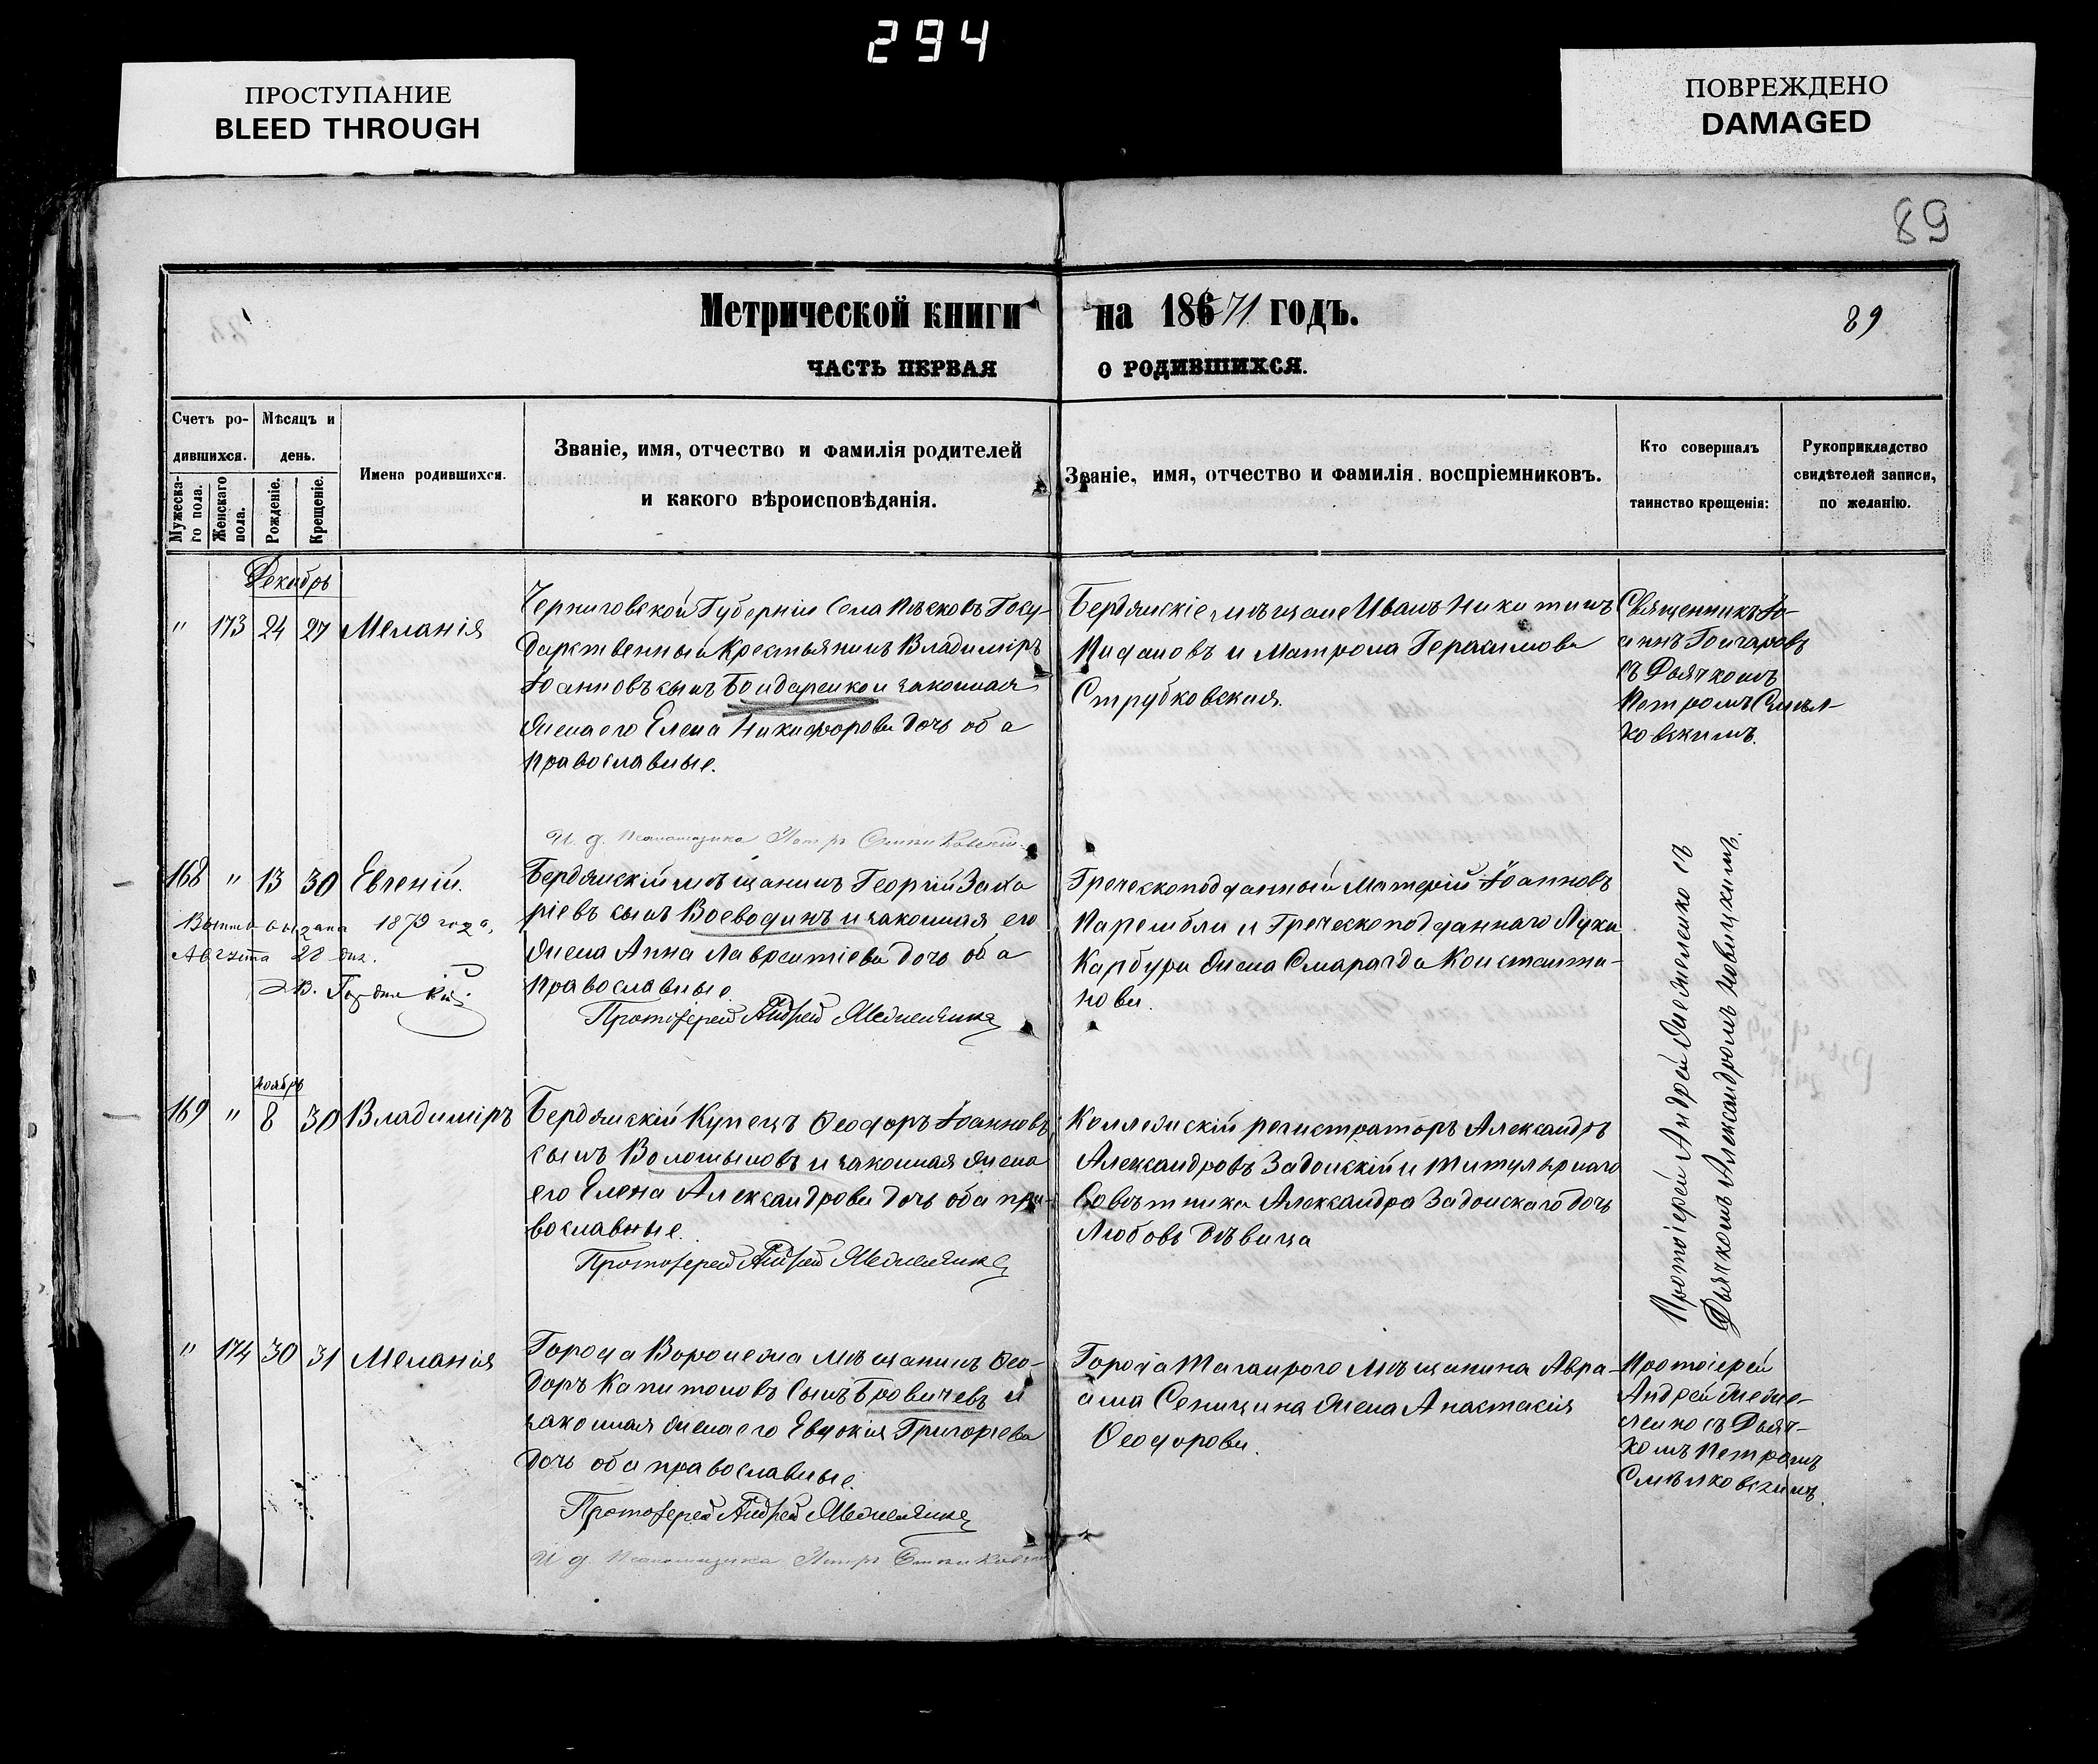 294
ПРОСТУПАНИЕ
BLEED THROUGH
ПОВРЕЖДЕНО
DAMAGED
89
Метрической книги на 18671 годъ.
89
ЧАСТЬ ПЕРВАЯ О РОДИВШИХСЯ.
Счетъ ро-
дившихся.
Мужеска-
го пола.
Женскаго
пола.
Мѣсяцъ и
день.
Рожденіе.
Крещеніе.
Имена родившихся.
Званіе, имя, отчество и фамилія родителей
и какого вѣроисповѣданія.
Званіе, имя, отчество и фамилія воспріемниковъ.
Кто совершалъ
таинство крещенія:
Рукоприкладство
свидѣтелей записи,
по желанію.
Декабрь
" 173 24 27 Меланія
Черниговской Губерніи Села Пѣсковъ Госу-
дарственный Крестьянинъ Владиміръ
Іоанновъ сынъ Бондаренко и законная
жена его Елена Никифорова дочь оба
православные.
Бердянскіе мѣщане Иванъ Никитинъ
и Матрона Герасимова
Струбковская.
Священникъ Іо-
аннъ Гончаровъ
съ Дьячкомъ
Петромъ Смѣл-
ковскимъ.
И. д. Псаломщика Петръ
168 " 13 30 Евгеній.
выдана 1879 года,
Августа 28 дня.
Бердянскій мѣщанинъ Георгій Заха
ріевъ сынъ Воеводинъ и законная его
жена Анна Лаврентіева дочь оба
православные
Протоіерей Андрей Межлененко
Греческоподданный Іоанновъ
и Греческоподданнаго Луки
Карбури жена Смарагда Константи-
нова.
Протоіерей Андрей съ
Дьячкомъ Александромъ Новицкимъ.
Ноябрь
169 " 8 30 Владиміръ
Бердянскій Купецъ Ѳеодоръ Іоанновъ
сынъ Волошиновъ и законная жена
его Елена Александрова дочь оба пра-
вославные.
Протоіерей Андрей
Коллежскій регистраторъ Александръ
Александровъ Задонскій и титулярнаго
Совѣтника Александра Задонскаго дочь
Любовь дѣвица
" 174 30 31 Меланія
Города Воронежа мѣщанинъ Ѳео-
доръ Капитоновъ сынъ Бровичевъ и
законная жена его Евдокія Григорьева
дочь оба православные.
Протоіерей Андрей
И д. Псаломщика Петръ
Города Таганрога Мѣщанина Авра-
ама Сеницина жена Анастасія
Ѳеодорова.
Протоіерей
Андрей
съ Дьяч-
комъ Петромъ
Смѣлковскимъ.